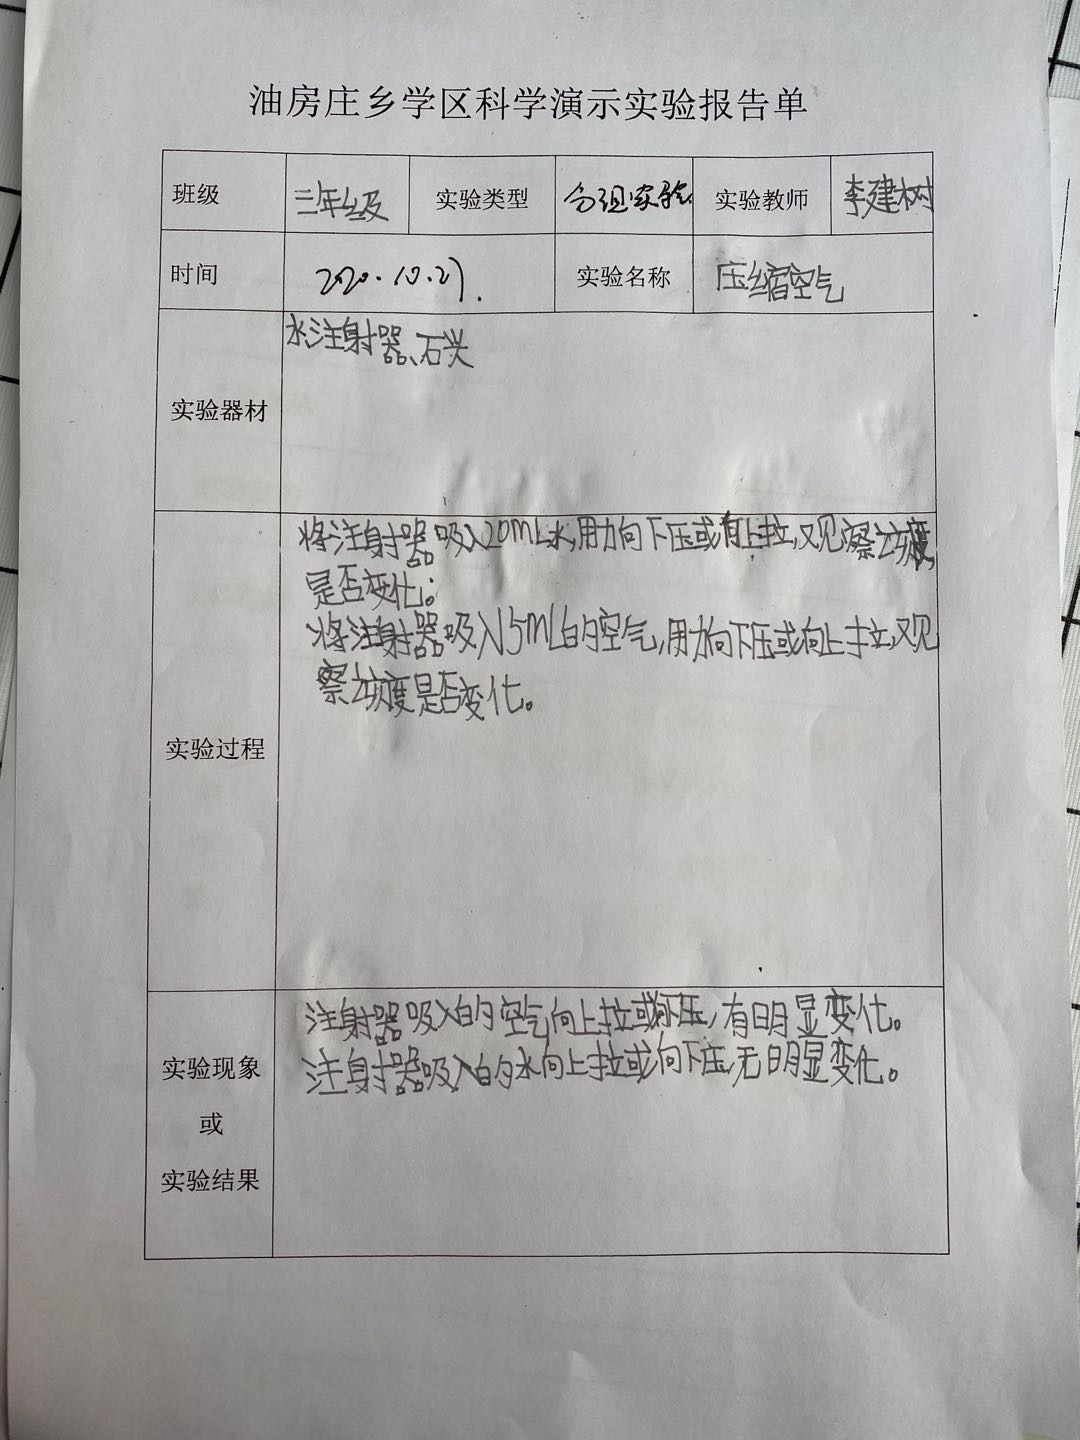 油房庄乡学区科学演示实验报告单
班级 三年级 实验类型 分组实验 实验教师 李建树
时间 2020.10.27. 实验名称 压缩空气
实验器材 水注射器、石头
实验过程
将注射器吸入20mL水,用力向下压或向上拉,观察刻度
是否变化;
将注射器吸入15mL的空气,用力向下压或向上拉,观
察刻度是否变化。
实验现象
或
实验结果
注射器吸入的空气向上拉或向下压,有明显变化。
注射器吸入的水向上拉或向下压,无明显变化。